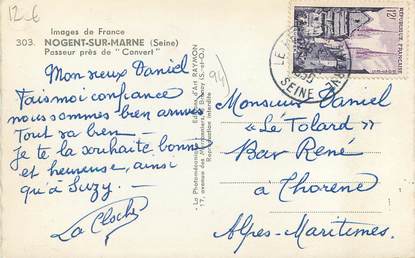 12 €
Images de France
303. NOGENT-SUR-MARNE (Seine)
Passeur près de "Convert"
Mon vieux Daniel
Fais moi confiance
nous sommes bien arrivés
Tout va bien —
Je te la souhaite bonne
et heureuse, ainsi
qu'à Suzy. —
La Cloche
17, avenue des
Reproduction interdite
(94)
12F
REPUBLIQUE FRANÇAISE
SEINE
Monsieur Daniel
"Le Tolard"
Bar René
à Thorenc
Alpes-Maritimes.